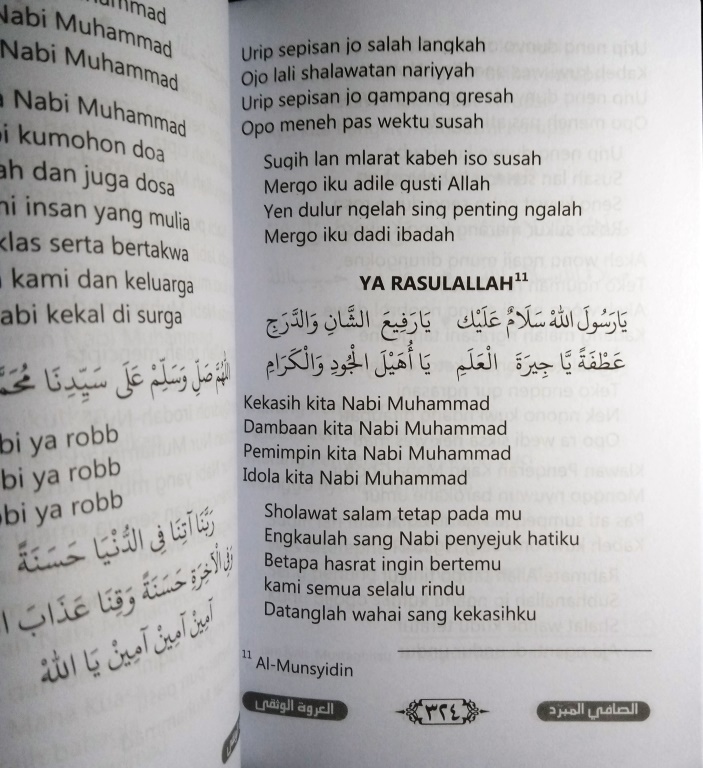 Nabi Muhammad
Nabi Muhammad
Nabi Muhammad
kumohon doa
dan juga dosa
insan yang mulia
serta bertakwa
kami dan keluarga
kekal di surga
اللهم صل وسلم على سيدنا
ya robb
ya robb
ya robb
رَبَّنَا آتِنَا فِي الدُّنْيَا حَسَنَةً
وَفِي الْآخِرَةِ حَسَنَةً وَقِنَا عَذَابَ
آمِيْنْ آمِيْنْ آمِيْنْ يَا اللهْ
Urip sepisan jo salah langkah
Ojo lali shalawatan nariyyah
Urip sepisan jo gampang gresah
Opo meneh pas wektu susah
Sugih lan mlarat kabeh iso susah
Mergo iku adile gusti Allah
Yen dulur ngelah sing penting ngalah
Mergo iku dadi ibadah
YA RASULALLAH¹¹
يَارَسُولَ اللهْ سَلَامٌ عَلَيْكْ يَارَفِيعَ الشَّانِ وَالدَّرَجِ
عَطْفَةً يَّا جِيرَةَ الْعَلَمِ يَا أُهَيْلَ الْجُودِ وَالْكَرَامِ
Kekasih kita Nabi Muhammad
Dambaan kita Nabi Muhammad
Pemimpin kita Nabi Muhammad
Idola kita Nabi Muhammad
Sholawat salam tetap pada mu
Engkaulah sang Nabi penyejuk hatiku
Betapa hasrat ingin bertemu
kami semua selalu rindu
Datanglah wahai sang kekasihku
¹¹ Al-Munsyidin
العروة الوثقى ٣٢٤ الصافي المبرد